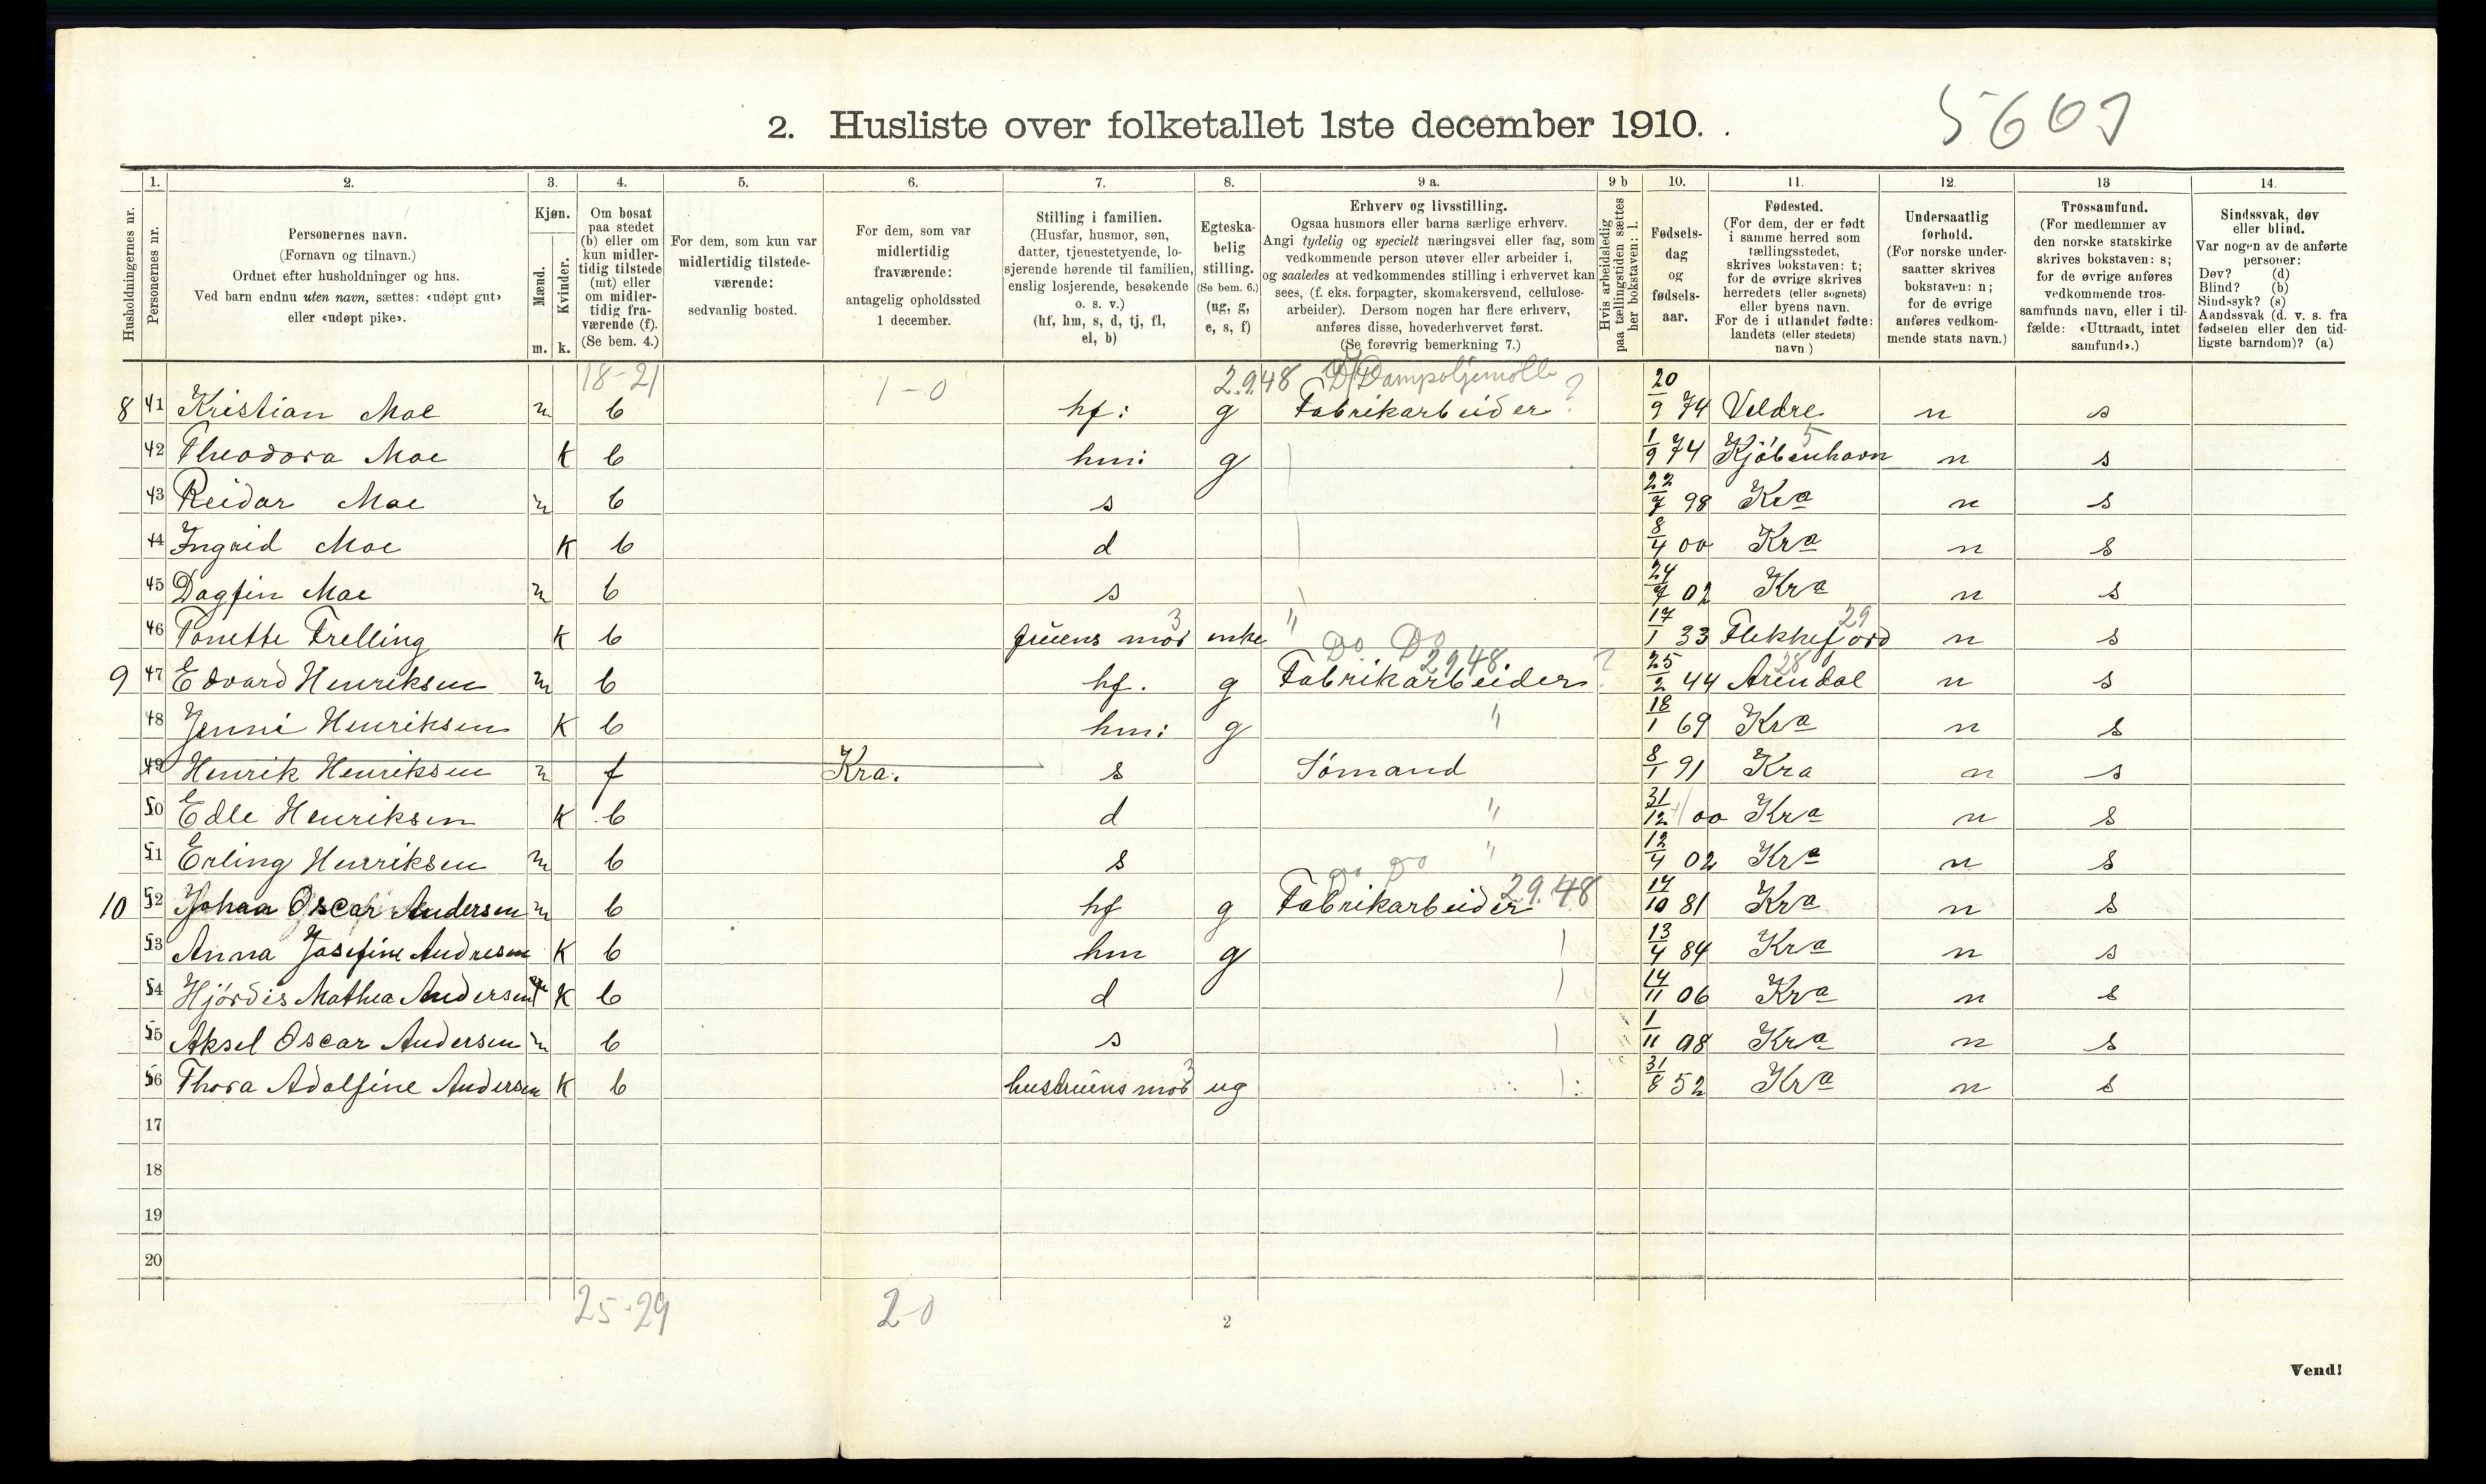 5609
2. Husliste over folketallet 1ste december 1910.
Husholdningernes nr.
1.
Personernes nr.
2.
Personernes navn.
(Fornavn og tilnavn.)
Ordnet efter husholdninger og hus.
Ved barn endnu uten navn, sættes: «udøpt gut»
eller «udøpt pike».
3.
Kjøn.
Mænd.
Kvinder.
m. k.
4.
Om bosat
paa stedet
(b) eller om
kun midler-
tidig tilstede
(mt) eller
om midler-
tidig fra-
værende (f).
(Se bem. 4.)
5.
For dem, som kun var
midlertidig tilstede-
værende:
sedvanlig bosted.
6.
For dem, som var
midlertidig
fraværende:
antagelig opholdssted
1 december.
7.
Stilling i familien.
(Husfar, husmor, søn,
datter, tjenestetyende, lo-
sjerende hørende til familien,
enslig losjerende, besøkende
o. s. v.)
(hf, hm, s, d, tj, fl,
el, b)
8.
Egteska-
belig
stilling.
(Se bem. 6.)
(ug, g,
e, s, f)
9 a.
Erhverv og livsstilling.
Ogsaa husmors eller barns særlige erhverv.
Angi tydelig og specielt næringsvei eller fag, som
vedkommende person utøver eller arbeider i,
og saaledes at vedkommendes stilling i erhvervet kan
sees, (f. eks. forpagter, skomakersvend, cellulose-
arbeider). Dersom nogen har flere erhverv,
anføres disse, hovederhvervet først.
(Se forøvrig bemerkning 7.)
9 b
Hvis arbeidsledig
paa tællingstiden sættes
her bokstaven: l.
10.
Fødsels-
dag
og
fødsels-
aar.
11.
Fødested.
(For dem, der er født
i samme herred som
tællingsstedet,
skrives bokstaven: t;
for de øvrige skrives
herredets (eller sognets)
eller byens navn.
For de i utlandet fødte:
landets (eller stedets)
navn )
12.
Undersaatlig
forhold.
(For norske under-
saatter skrives
bokstaven: n;
for de øvrige
anføres vedkom-
mende stats navn.)
13
Trossamfund.
(For medlemmer av
den norske statskirke
skrives bokstaven: s;
for de øvrige anføres
vedkommende tros-
samfunds navn, eller i til-
fælde: «Uttraadt, intet
samfund».)
14.
Sindssvak, døv
eller blind.
Var nogen av de anførte
personer:
Døv? (d)
Blind? (b)
Sindssyk? (s)
Aandssvak (d. v. s. fra
fødselen eller den tid-
ligste barndom)? (a)
18-21 1-0 2.9.48 Dampoljemølle
8 41 Kristian Moe m b hf: g Fabrikarbeider ? 20/9 74 Veldre n s
42 Theodora Moe K b hm: g 1/9 74 Kjöbenhavn 5 n s
43 Reidar Moe m b s 22/7 98 Kra n s
44 Ingrid Moe K b d 8/4 00 Kra n s
45 Dagfin Moe m b s 24/7 02 Kra n s
46 Tonette Trelling K b fruens mor 3 enke " 17/1 33 Flekkefjord 29 n s
Do Do
9 47 Edvard Henriksen m b hf. g Fabrikarbeider 29.48 ? 25/2 44 Arendal 28 n s
48 Jenni Henriksen K b hm: g " 18/1 69 Kra n s
49 Henrik Henriksen m f Kra. s Sømand 8/1 91 Kra n s
50 Edle Henriksen K b d " 31/12 00 Kra n s
51 Erling Henriksen m b s " 12/4 02 Kra n s
Do Do
10 52 Johan Oscar Andersen m b hf g Fabrikarbeider 29.48 14/10 81 Kra n s
53 Anna Josefine Andresen K b hm g 13/4 84 Kra n s
54 Hjördis Mathea Andersen K b d 14/11 06 Kra n s
55 Aksel Oscar Andersen m b s 1/11 08 Kra n s
56 Thora Adolfine Andersen K b hustruens mor 3 ug 31/8 52 Kra n s
17
18
19
20
25-29 2-0
2
Vend!